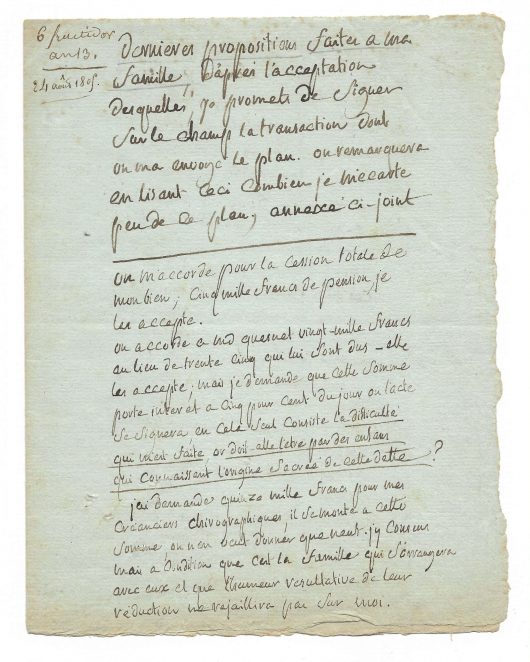 6 fructidor
an 13.
24 août 1805.
Dernieres propositions faites a ma
famille, Dapres l'acceptation
desquelles, je promets de Signer
Sur le champ la transaction dont
on ma envoyé le plan. on remarquera
en lisant ceci Combien je m'ecarte
peu de ce plan, annexé ci-joint
on m'accorde pour la cession totale de
mon bien, Cinq mille francs de pension, je
les accepte.
on accorde a md quesnet vingt-mille francs
au lieu de trente cinq qui lui sont dus – elle
les accepte; mais je demande que cette Somme
porte interet a Cinq pour cent du jour ou l'acte
Se Signera en Cela Seul Consiste la difficulté
qui m'est faite or doit-elle l'etre par des enfans
qui Connaissent l'origine Sacrée de cette dette ?
j'ai demandé quinze mille francs pour mes
Créanciers chirographiques, il se monte a cette
Somme on n'en veut donner que neuf. j'y Consens
mais a Condition que C'est la famille qui S'arrangera
avec eux et que l'humeur resultative de leur
réduction ne rejaillira pas Sur moi.